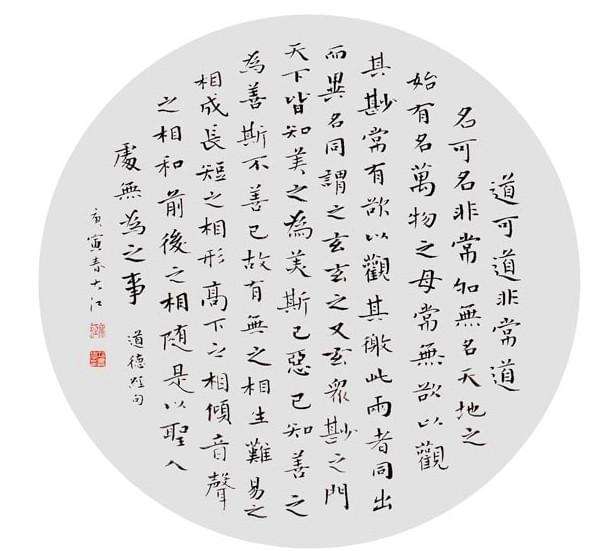 道可道非常道
名可名非常名無名天地之
始有名萬物之母常無欲以觀
其玅常有欲以觀其徼此兩者同出
而異名同謂之玄玄之又玄眾玅之門
天下皆知美之為美斯已惡已知善之
為善斯不善已故有無之相生難易之
相成長短之相形高下之相傾音聲
之相和前後之相隨是以聖人
處無為之事
道德經句
庚寅春大江